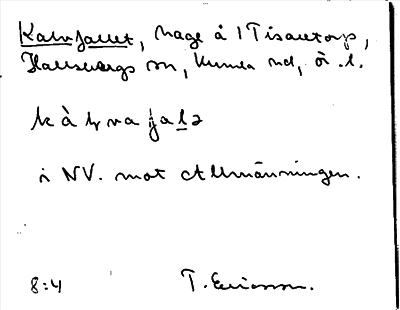 Kalvfallet, hage å 1 Tisaretorp,
Hallsbergs sn, Kumla hd, ör. l.
i NV. mot Allmänningen.
8:4 T. Ericsson.